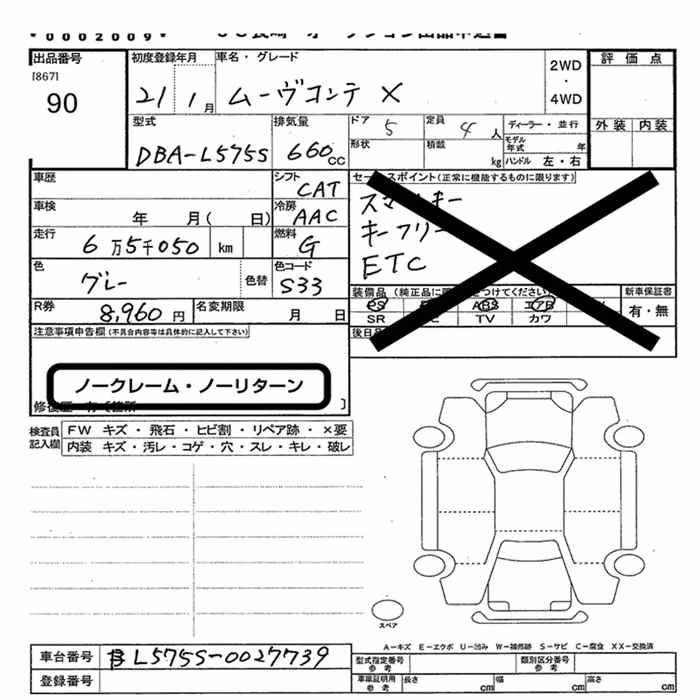 *0002009*
出品番号
[867]
90
初度登録年月 車名・グレード
21 1月 ムーヴコンテ X
2WD
・
4WD
評価点
外装 内装
型式 排気量 ドア 定員 ディーラー・並行
DBA-L575S 660CC 5 4人
形状 積載 kg モデル年式 年
ハンドル 左・右
車歴 シフト CAT
車検 年 月( 日) 冷房 AAC
走行 6万5千050 km 燃料 G
色 グレー 色替 色コード S33
R券 8,960円 名変期限 月 日
セールスポイント(正常に機能するものに限ります)
キーフリー
ETC
装備品 新車保証書
PS ABS エアB 有・無
SR TV カワ
後日
注意事項申告欄(不具合内容等は具体的に記入して下さい)
ノークレーム・ノーリターン
検査員記入欄
FW キズ・飛石・ヒビ割・リペア跡・×要
内装 キズ・汚レ・コゲ・穴・スレ・キレ・破レ
スペア
A-キズ E-エクボ U-凹み W-補修跡 S-サビ C-腐食 XX-交換済
車台番号 L575S-0027739
登録番号
型式指定番号 参考 類別区分番号 参考
車庫証明用 参考 長さ cm 幅 cm 高さ cm